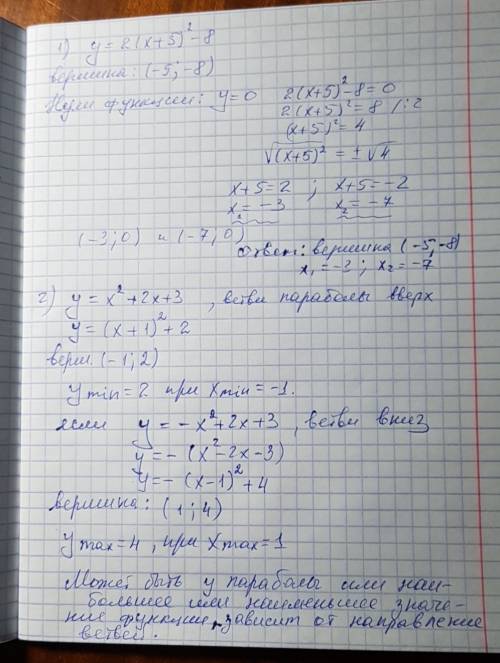 1) y = 2(x+5)² - 8
вершина: (-5; -8)
Нули функции: y=0
2(x+5)² - 8 = 0
2(x+5)² = 8 /:2
(x+5)² = 4
√(x+5)² = ±√4
x+5=2 ; x+5=-2
x₁ = -3 x₂ = -7
(-3; 0) и (-7; 0)
Ответ: вершина (-5; -8)
x₁ = -3 ; x₂ = -7
2) y = x² + 2x + 3 , ветви параболы вверх
y = (x+1)² + 2
верш. (-1; 2)
y min = 2 при x min = -1.
если y = -x² + 2x + 3 , ветви вниз
y = - (x² - 2x - 3)
y = - (x-1)² + 4
вершина: (1; 4)
y max = 4 , при x max = 1
Может быть у параболы или наи-
большее или наименьшее значе-
ние функции, зависит от направление
ветвей.